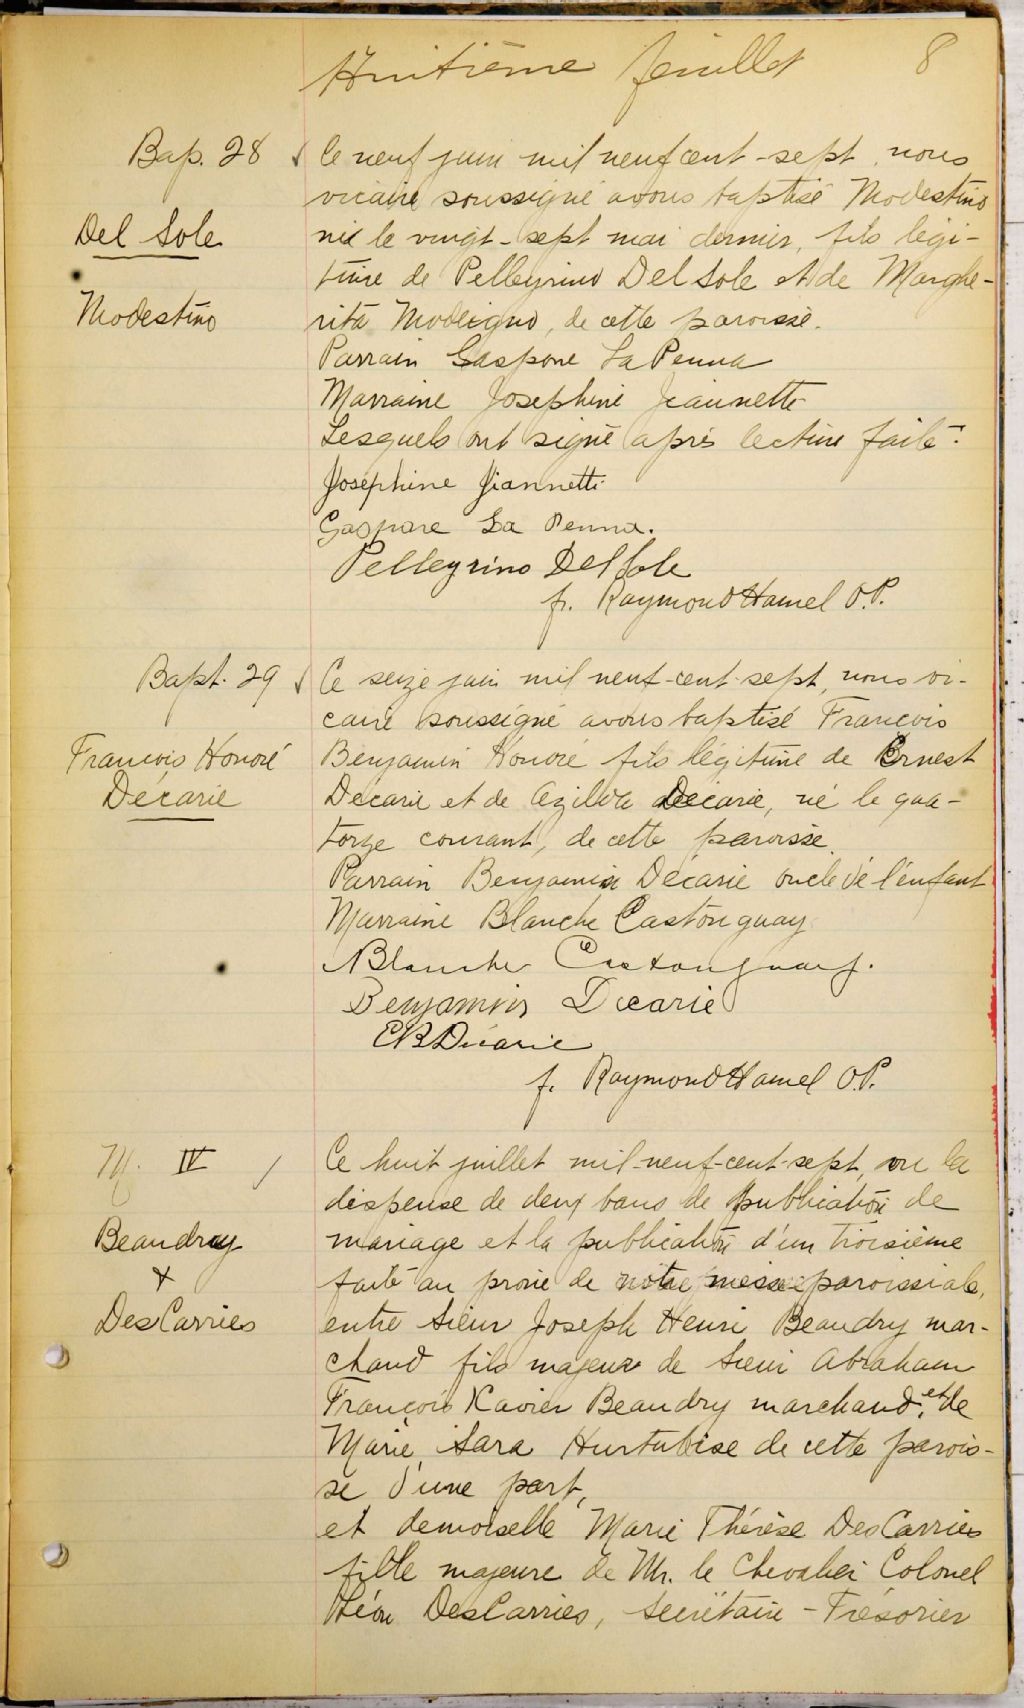 Huitième feuillet 8
Bap. 28
Del Sole
Modestino
Ce neuf juin mil neuf cent-sept, nous
vicaire soussigné avons baptisé Modestino
né le vingt-sept mai dernier, fils légi-
time de Pellegrino Del Sole et de Marghe-
rita Modeigno, de cette paroisse.
Parrain Gaspone La Penna
Marraine Josephine Jeannette
Lesquels ont signé après lecture faite.
Josephine Jiannetti
Gaspare La Penna.
Pellegrino Del Sole
fr. Raymond Hamel O.P.
Bapt. 29
Francois Honoré
Décarie
Ce seize juin mil neuf-cent-sept, nous vi-
caire soussigné avons baptisé François
Benjamin Honoré fils légitime de Ernest
Decarie et de Azilda Décarie, né le qua-
torze courant, de cette paroisse.
Parrain Benjamin Décarie oncle de l'enfant
Marraine Blanche Castonguay
Blanche Castonguay.
Benjamin Décarie
EB Décarie
f. Raymond Hamel O.P.
M. IV
Beaudry
+
DesCarries
Ce huit juillet mil-neuf-cent-sept, vu la
dispense de deux bans de publication de
mariage et la publication d'un troisième
faite au prône de notre messe paroissiale,
entre Sieur Joseph Henri Beaudry mar-
chand fils majeur de Sieur Abraham
François Xavier Beaudry marchand, et de
Marie Sara Hurtubise de cette parois-
se d'une part,
et demoiselle Marie Thérèse DesCarries
fille majeure de Mr. le Chevalier Colonel
Léon DesCarries, Secrétaire-Trésorier